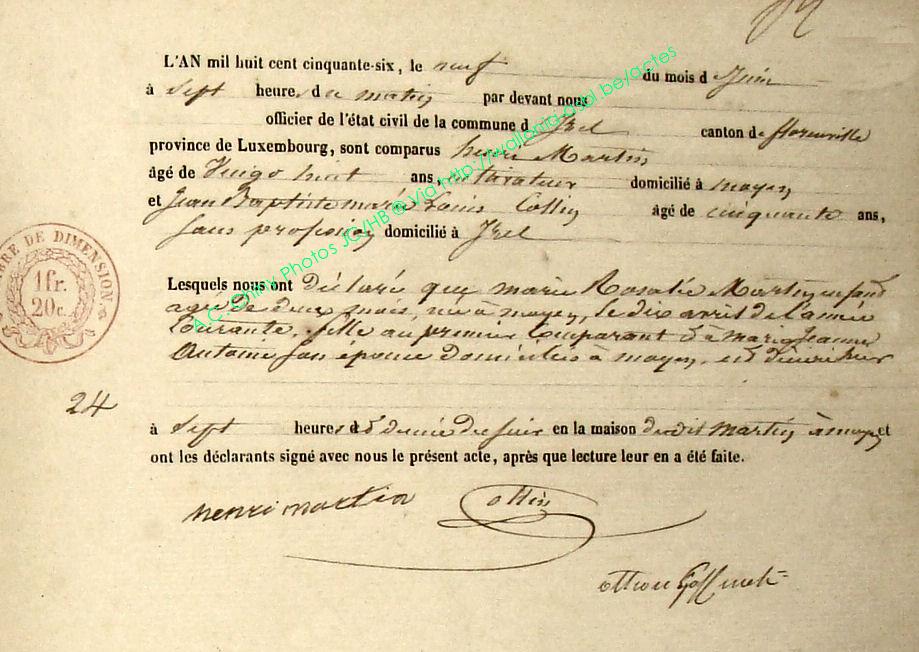 L'AN mil huit cent cinquante-six, le neuf du mois d Juin
à sept heures du matin par devant nous
officier de l'état civil de la commune d Izel canton de florenville
province de Luxembourg, sont comparus henri Martin
âgé de Vuigt huit ans, cultivateur domicilié à moyen
et Jean Baptiste marie Louis Collin âgé de cinquante ans,
Sans profession domicilié à Izel
Lesquels nous ont déclaré que marie Rosalie Martin enfant
agée de deux mois, née à moyen, le dix avril de l'année
Courante, fille au premier Comparant & de marie Jeanne
Antoine son épouse domiciliés à moyen, est décédée hier
24
à sept heures & demie du soir en la maison dudit Martin à moyen et
ont les déclarants signé avec nous le présent acte, après que lecture leur en a été faite.
henri martin Collin
Goffinet
TIMBRE DE DIMENSION
1 fr.
20 c.
A.C. Chiny Photos JCV/HB @ Via http://wallonia-asbl.be/actes